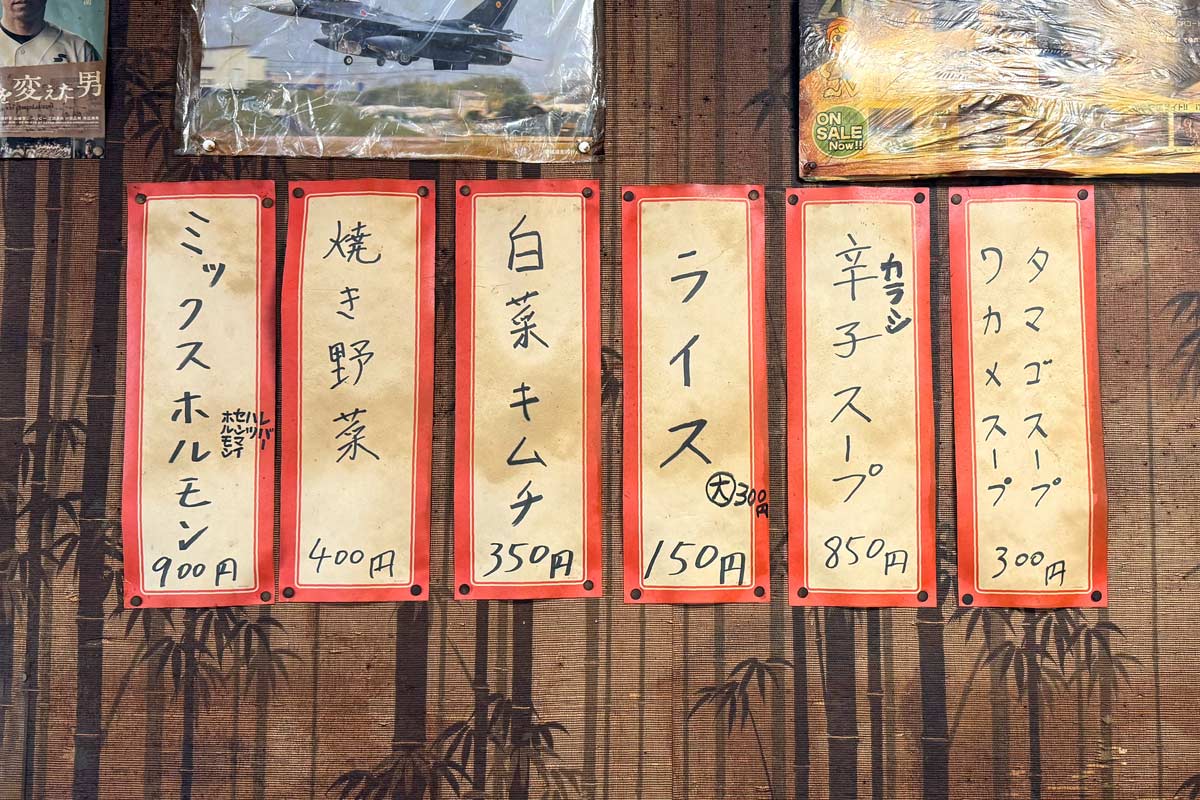 を変えた男
ON
SALE
Now!!
タマゴスープ
ワカメスープ
300円
カラシ
辛子スープ
850円
ライス
大300円
150円
白菜キムチ
350円
焼き野菜
400円
ミックスホルモン
レバー
ハツ
センマイ
ホルモン
900円